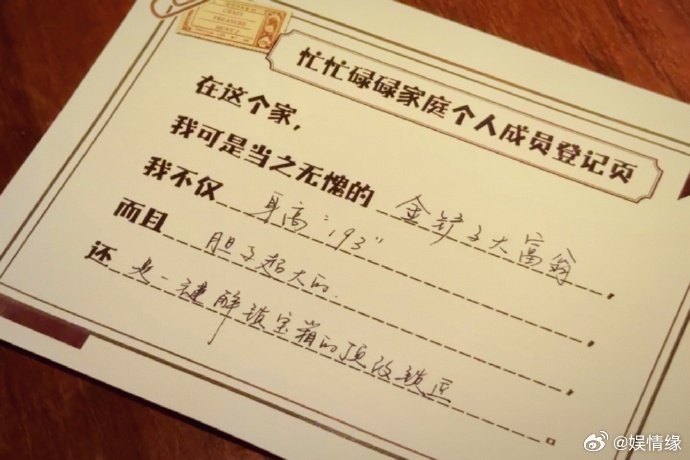 CRAZY
TREASURE
HUNT
忙忙碌碌家庭个人成员登记页
在这个家，
我可是当之无愧的 金铲子大富翁，
我不仅 身高"193"，
而且 胆子超大的，
还 是一键解锁宝箱的顶级锁匠。
@娱情缘